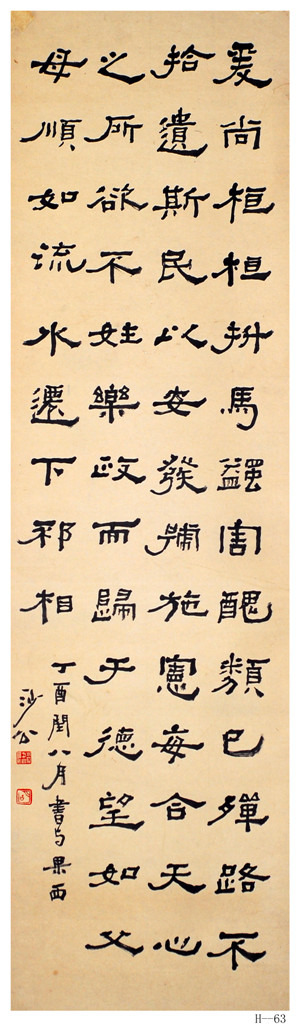 爰尚桓桓抍馬蠲害醜類已殫路不
拾遺斯民以安發號施憲每合天心
之所欲不姓樂政而歸于德望如父
母順如流水遷下邳相
丁酉閏八月書与果西
沙公
H—63